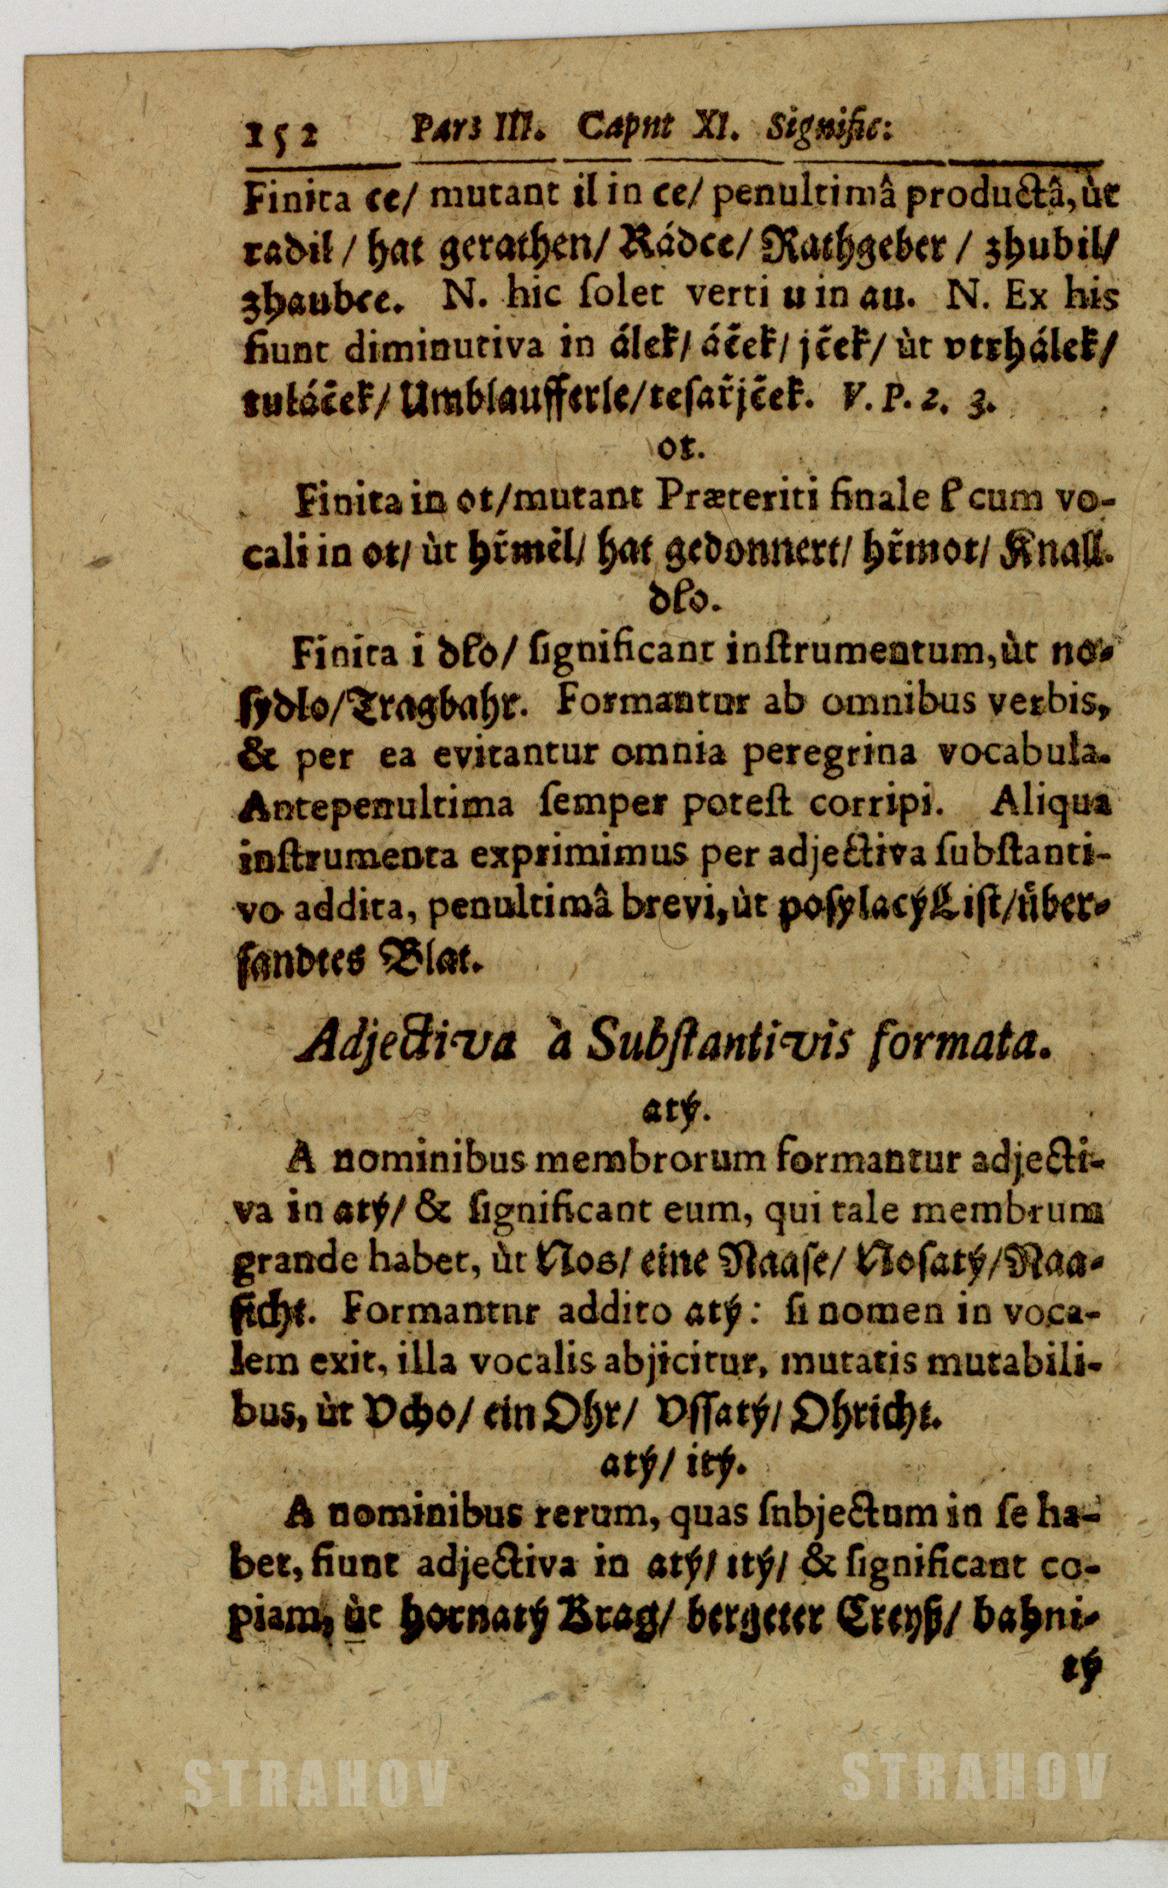 152 Pars III. Caput XI. Signific:
Finita ce/ mutant il in ce/ penultimâ productâ, ùt
radil / hat gerathen/ Rádce/ Rathgeber / zhubil/
zhaubce. N. hic ſolet verti u in au. N. Ex his
fiunt diminutiva in álek/ áček/ jček/ ùt vtrhálek/
tuláček/ Umblaufferle/ teſařjček. V. P. 2. 3.
ot.
Finita in ot/ mutant Præteriti finale l cum vo-
cali in ot/ ùt hřměl/ hat gedonnert/ hřmot/ Knall.
dlo.
Finita i dlo/ ſignificant inſtrumentum, ùt no-
ſydlo/ Tragbahr. Formantur ab omnibus verbis,
& per ea evitantur omnia peregrina vocabula.
Antepenultima ſemper poteſt corripi. Aliqua
inſtrumenta exprimimus per adjectiva ſubſtanti-
vo addita, penultimâ brevi, ùt poſylacý Liſt/ über-
ſandtes Blat.
Adjectiva à Subſtantivis formata.
atý.
A nominibus membrorum formantur adjecti-
va in atý/ & ſignificant eum, qui tale membrum
grande habet, ùt Nos/ eine Naaſe/ Noſatý/ Naa-
ſicht. Formantnr addito atý: ſi nomen in voca-
lem exit, illa vocalis abjicitur, mutatis mutabili-
bus, ùt Vcho/ ein Ohr/ Vſſatý/ Ohricht.
atý/ itý.
A nominibus rerum, quas ſnbjectum in ſe ha-
bet, fiunt adjectiva in atý/ itý/ & ſignificant co-
piam, ùt hornatý Krag/ bergeter Creyß/ bahni-
tý
STRAHOV STRAHOV